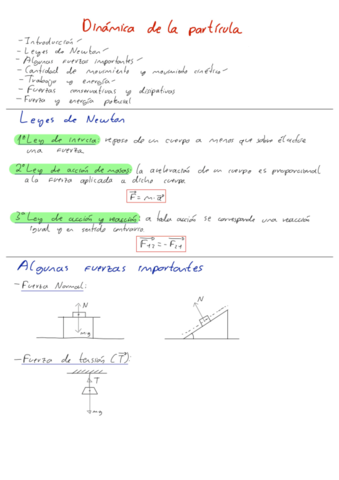 Dinámica de la partícula
- Introducción
- Leyes de Newton
- Algunas fuerzas importantes
- Cantidad de movimiento y momento cinético
- Trabajo y energía
- Fuerzas conservativas y disipativas
- Fuerza y energía potencial
Leyes de Newton
1ª Ley de inercia: reposo de un cuerpo a menos que sobre él actúe
una fuerza
2ª Ley de acción de masas: la aceleración de un cuerpo es proporcional
a la fuerza aplicada a dicho cuerpo
F = m · a
3ª Ley de acción y reacción: a toda acción se corresponde una reacción
igual y en sentido contrario
F12 = - F21
Algunas fuerzas importantes
- Fuerza Normal:
N
N
mg
- Fuerza de tensión (T):
T
mg